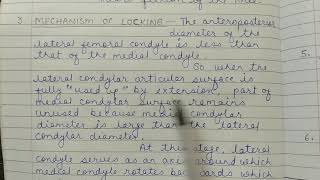 3. MECHANISM OF LOCKING - The anteroposterior
diameter of the
lateral femoral condyle is less than
that of the medial condyle
So when the
lateral condylar articular surface is
fully "used up" by extension, part of
medial condylar surface remains
unused because medial condylar
diameter is large than the lateral
condylar diameter.
At this stage, lateral
condyle serves as an axis around which
medial condyle rotates backwards which
5.
6.